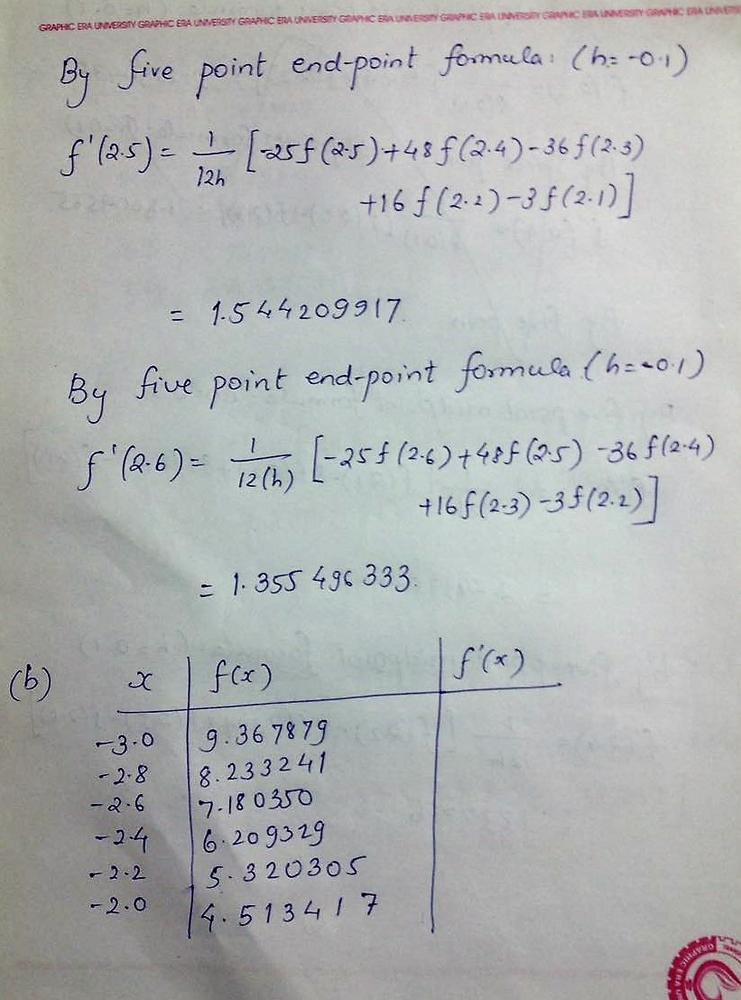 GRAPHIC ERA UNIVERSITY GRAPHIC ERA UNIVERSITY GRAPHIC ERA UNIVERSITY GRAPHIC ERA UNIVERSITY GRAPHIC ERA UNIVERSITY GRAPHIC ERA UNIVERSITY GRAPHIC ERA UNIVERSITY
By five point end-point formula: (h=-0.1)
f'(2.5) = 1/12h [-25f(2.5)+48f(2.4)-36f(2.3)
+16f(2.2)-3f(2.1)]
= 1.544209917.
By five point end-point formula. (h=-0.1)
f'(2.6) = 1/12(h) [-25f(2.6)+48f(2.5)-36f(2.4)
+16f(2.3)-3f(2.2)]
= 1.355496333.
(b) x f(x) f'(x)
-3.0 9.367879
-2.8 8.233241
-2.6 7.180350
-2.4 6.209329
-2.2 5.320305
-2.0 4.513417